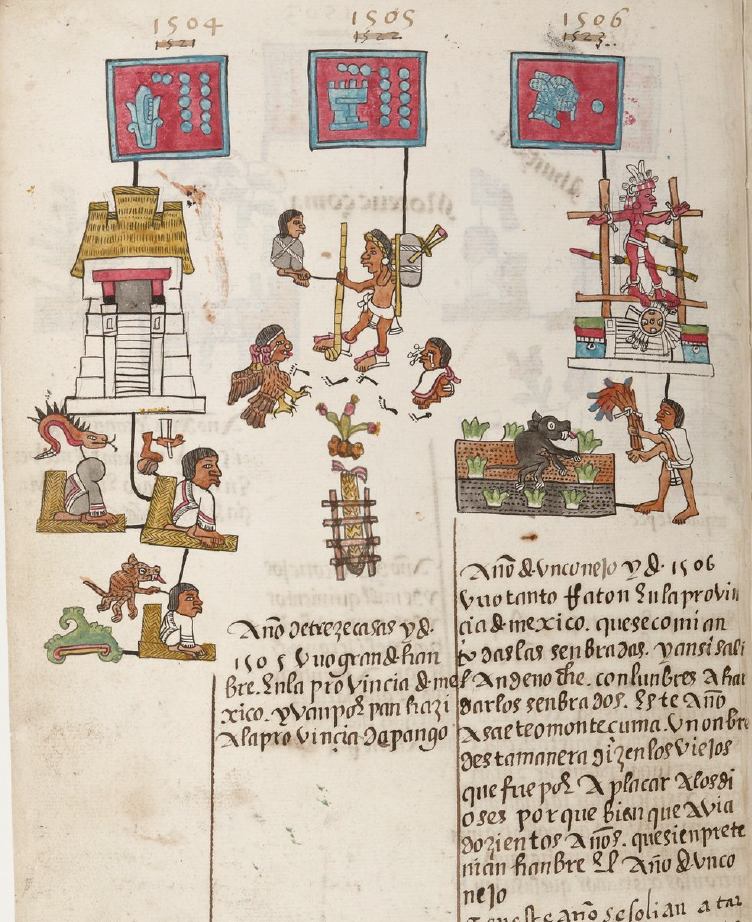 1504
1521
1505
1522
1506
1523
Año de treze casas y d.
1505 vuo gran de han
bre. en la provincia d me
xico. y van por pan hazi
a la provincia d a pango
Año d vn conejo y d. 1506
vuo tanto Raton en la provin
cia d mexico. que se comian
todas las senbradas. y ansi sali
an de noche. con lunbres a
darlos senbrados. este Año
Asaeteo montecuma. vn onbre
desta manera dizen los viejos
que fue por Aplacar Alosdi
oses porque bien que Avia
dozientos Años. que sienpre te
nian hanbre el Año d vn co
nejo
este año se solian atar